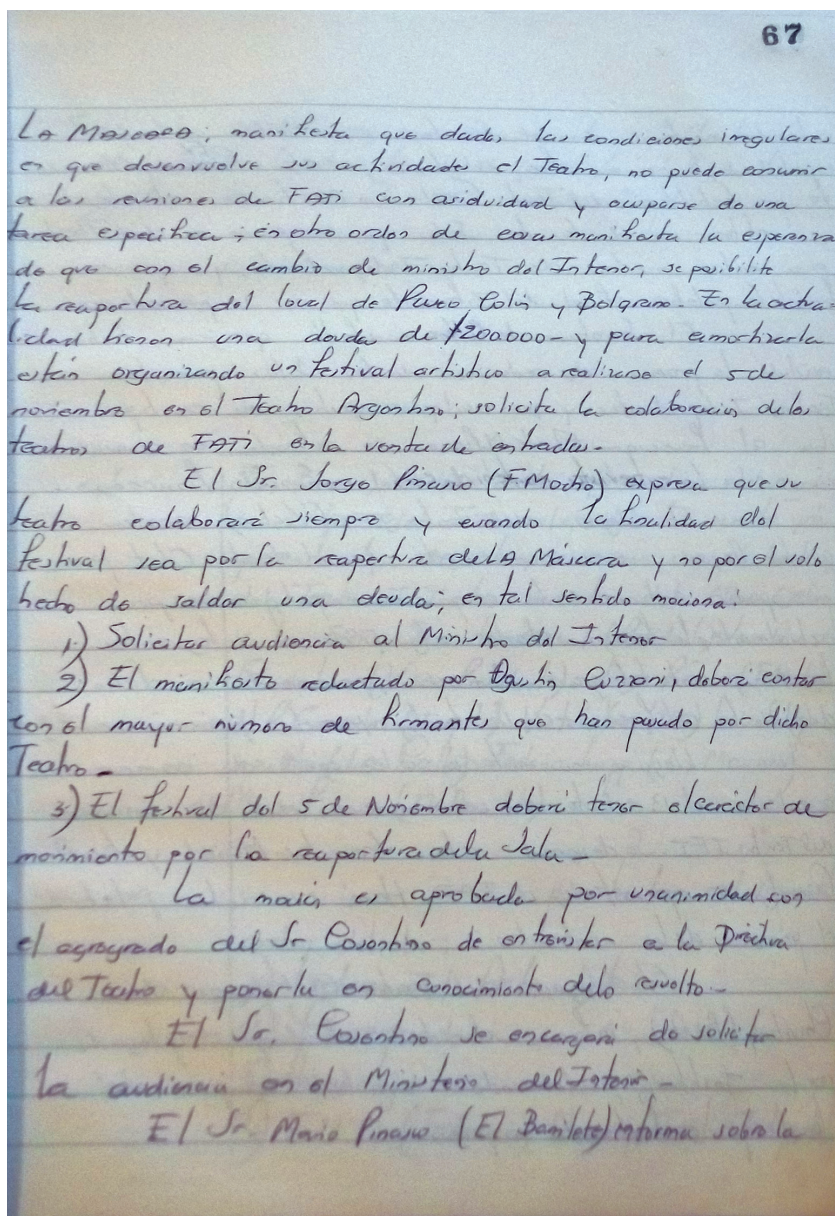 67
La Mascara; manifiesta que dadas las condiciones irregulares
en que desenvuelve sus actividades el Teatro, no puede concurrir
a las reuniones de FATI con asiduidad y ocuparse de una
tarea especifica; en otro orden de cosas manifiesta la esperanza
de que con el cambio de ministro del Interior, se posibilite
la reapertura del local de Paseo Colón y Belgrano. En la actua
lidad tienen una deuda de $200.000- y para amortizarla
están organizando un festival artistico a realizarse el 5 de
noviembre en el Teatro Argentino; solicita la colaboración de los
teatros de FATI en la venta de entradas.-
El Sr. Jorge Pinasco (F Mocho) expresa que su
teatro colaborará siempre y cuando la finalidad del
festival sea por la reapertura de LA Máscara y no por el solo
hecho de saldar una deuda; en tal sentido mociona:
1) Solicitar audiencia al Ministro del Interior
2) El manifiesto redactado por Agustin Cuzzani, deberá contar
con el mayor número de firmantes que han pasado por dicho
Teatro-
3) El festival del 5 de Noviembre deberá tener el carácter de
movimiento por la reapertura de la Sala-
La moción es aprobada por unanimidad con
el agregado del Sr Cosentino de entrevistar a la Directiva
del Teatro y ponerla en conocimiento de lo resuelto-
El Sr. Cosentino se encargará de solicitar
la audiencia en el Ministerio del Interior-
El Sr. Mario Pinasco (El Barrilete) informa sobre la